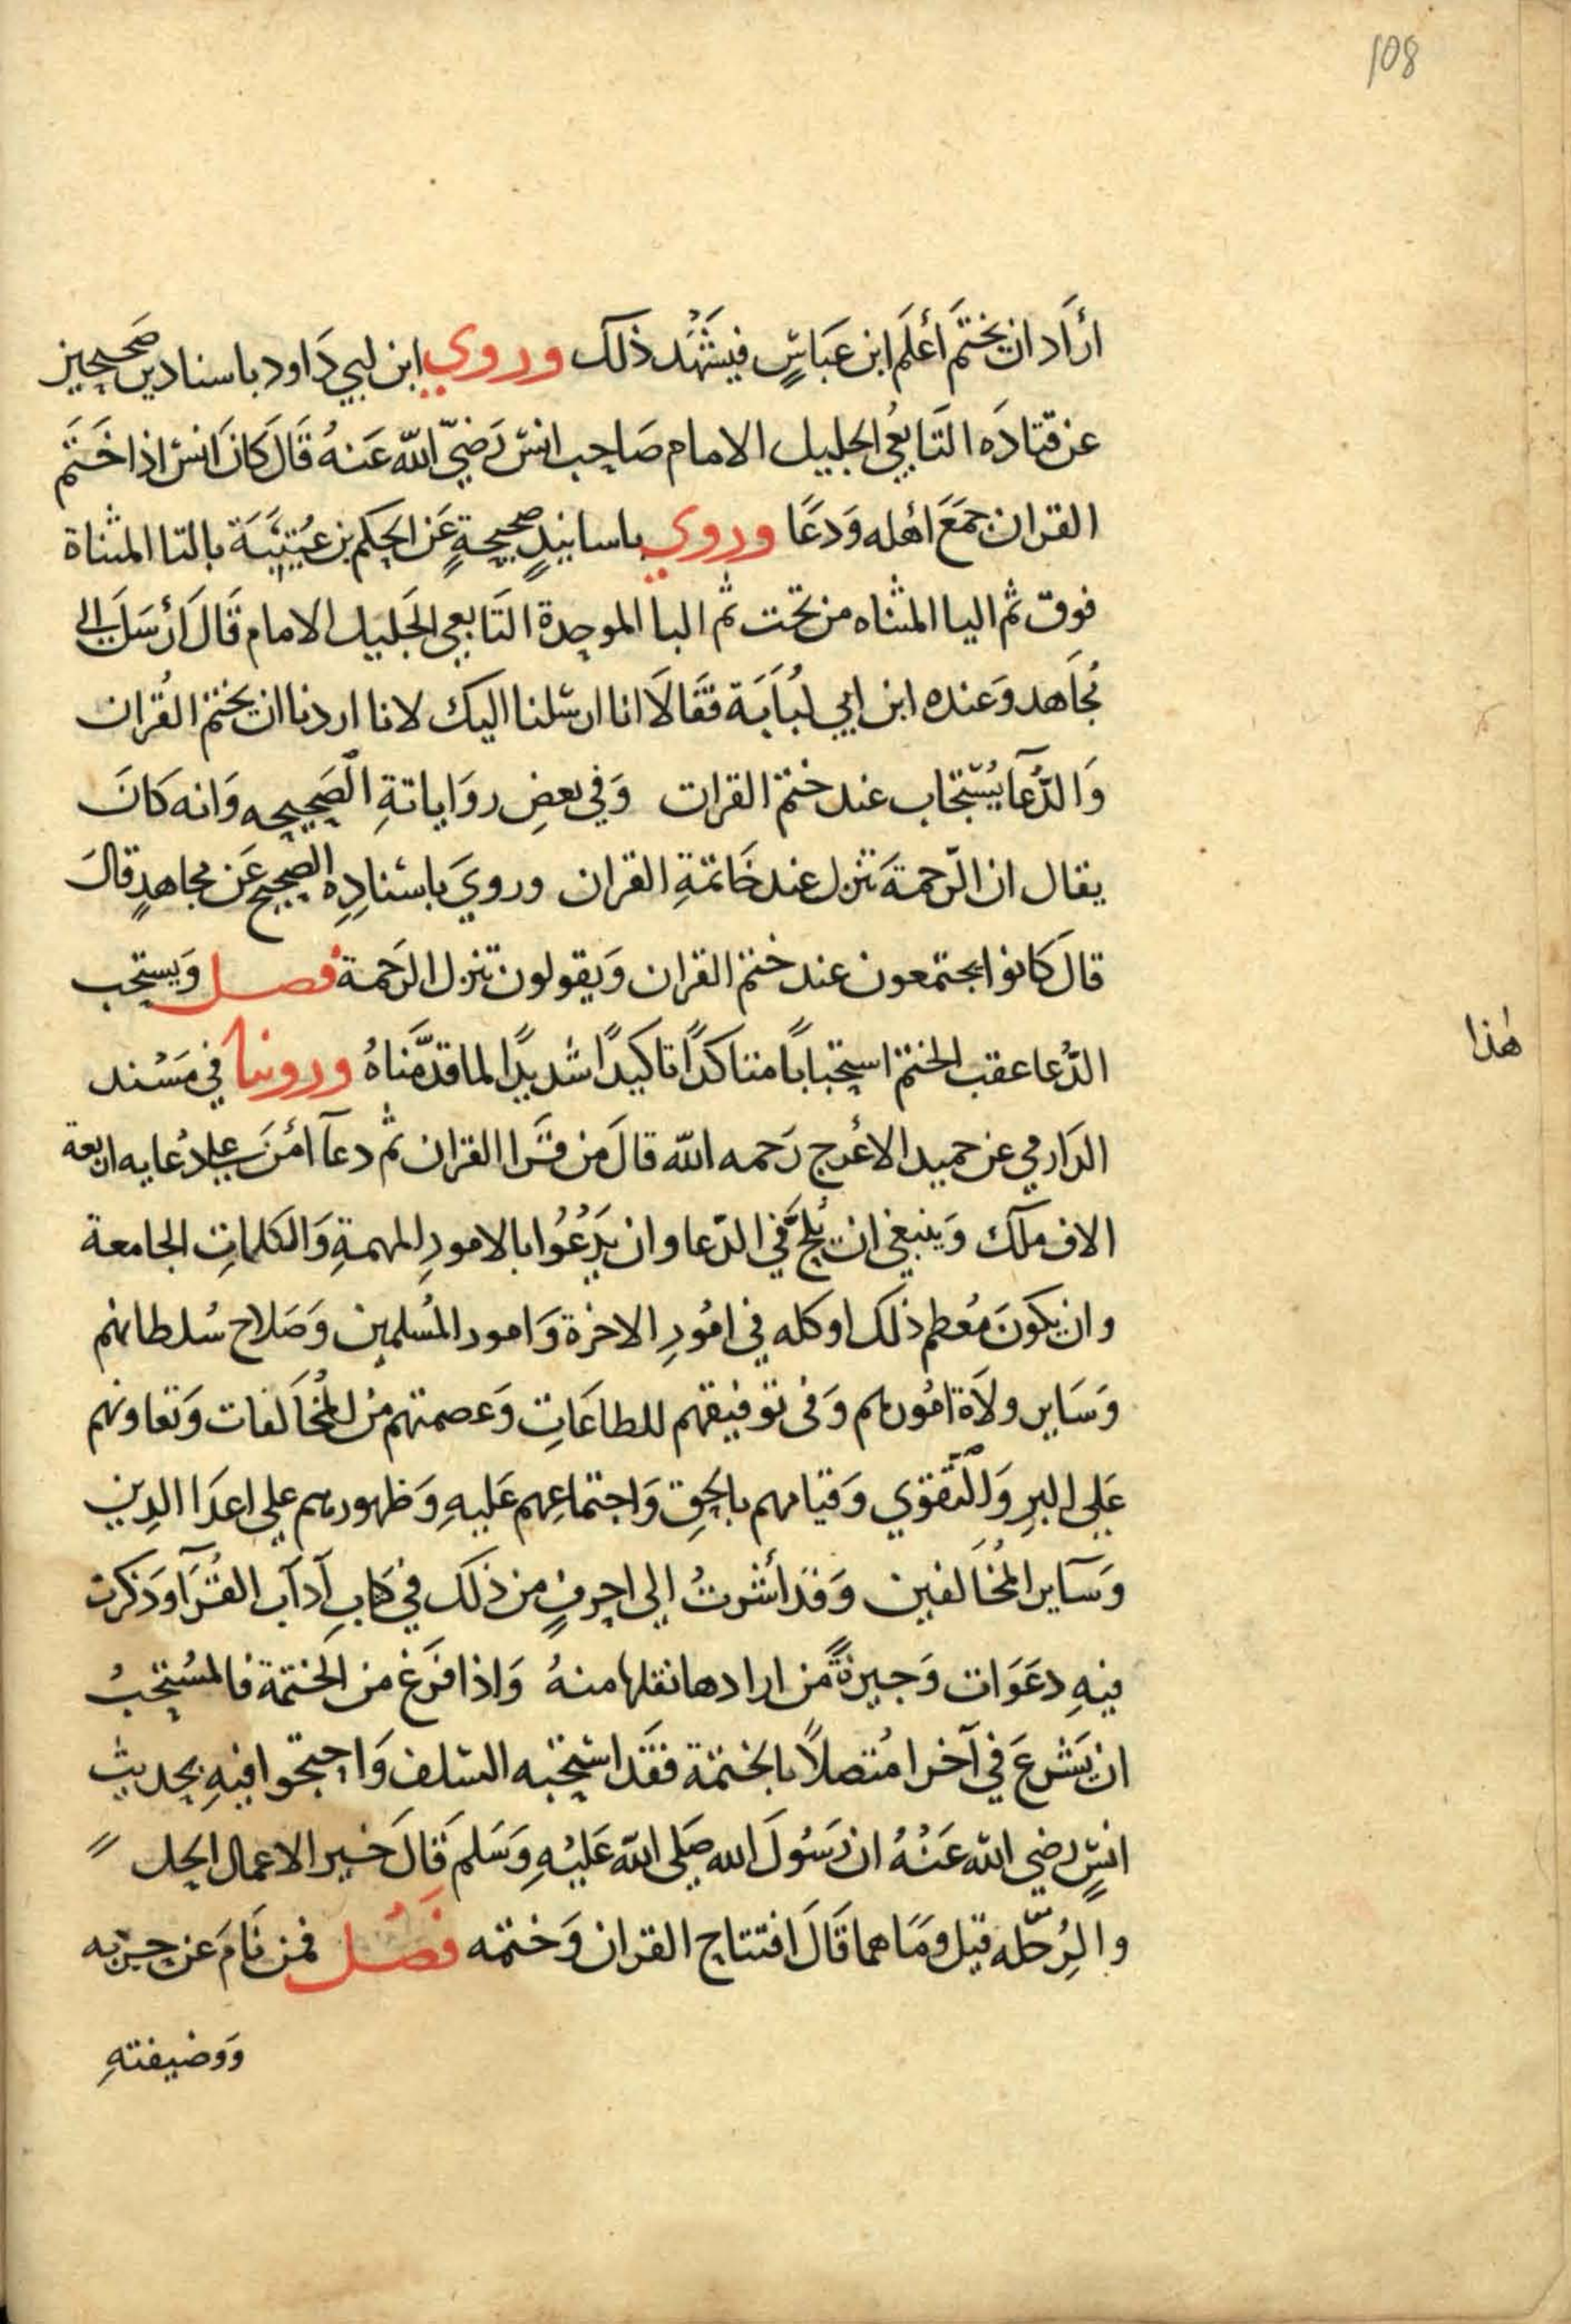 108
أرَاد ان يختَم أعلَم ابن عَبَاسٍ فيَشْهَد ذلك وروي ابن ابي دَاود باسنادين صَحيحين
عن قتادَه التَابعُي الجليل الامام صَاحِب انس رَضيّ اللّه عَنهُ قَالَ كَانَ انس اذا خَتَم
القران جمَعَ اهله وَدعَا وروي باسانيدٍ صحيحةٍ عَن الحِكم بن عُتَيبَة بالتا المثناة
فوق ثم اليا المثناه من تحت ثم البا الموحدة التَابعي الجَليل الامام قَالَ أرْسَلَ الي
مُجَاهد وَعنده ابن ابي لبُابَة فقَالَا انا ارسلنا اليك لانا اردنا ان نختم القُران
وَالدُّعآ يُستجَاب عند ختم القران وَفي بعضِ روَاياتةِ الصَحِيحِه وَانه كَانَ
يقال ان الرّحمةَ تنزل عند خَاتمةِ القران وروي باسنادِهِ الصحِيح عَن مجاهدٍ قالَ
قالَ كانوا يجتمعون عند ختم القران وَيقولون تنزل الرَحمة فصل وَيستحب
الدُّعا عقب الختم استحباباً متاكدًا تاكيدًا شديدًا لما قدَّمنَاهُ وروينا في مَسْند
الدَارمي عن حميد الاعْرج رَحمه اللّه قالَ من قرَا القران ثم دعآ امَّنَ علي دُعايه اربعة
الاف ملَك وَينبغي ان يُلحَّ في الدّعا وان يَدْعُوا بالامورِ المهمةِ وَالكَلماتِ الجامعة
وان يكونَ مُعظم ذلك او كله في امُورِ الاخرة وَامور المُسلمين وَصَلاح سُلطانهم
وَسَاير ولَاة امُورهم وَفي توفيقهم للطاعَاتِ وَعصمتهم من المُخَالفات وَتعاونهم
عَلي البرِ وَالتقوي وَقيامهم بالحقِ وَاجتماعِهم عَليهِ وَظهورهم علي اعدَا الدِين
وَسَآير المُخَالفين وَقد أشرتُ الي احرفٍ من ذلك في كتابِ آدَآب القُرَآ وَذكرت
فيهِ دعَوَات وَجيزةً من ارادها نقلها منهُ وَاذا فرَغ من الختمة فالمسُتحبُ
ان يَشرعَ في آخرا مُتصلاً بالختمة فقَد استحبه السلف وَاحتجوا فيهِ بحديث
انسٍ رضي اللّه عَنْهُ ان رَسُولَ الله صَلي اللّه عَليْهِ وَسَلمَ قَالَ خَير الاعمال الحِل
والرُحّله قيل وَمَا هما قَالَ افتتاح القران وَختمه فصل فمن نَامَ عن حزبه
وَوضيفتهِ
هٰذا